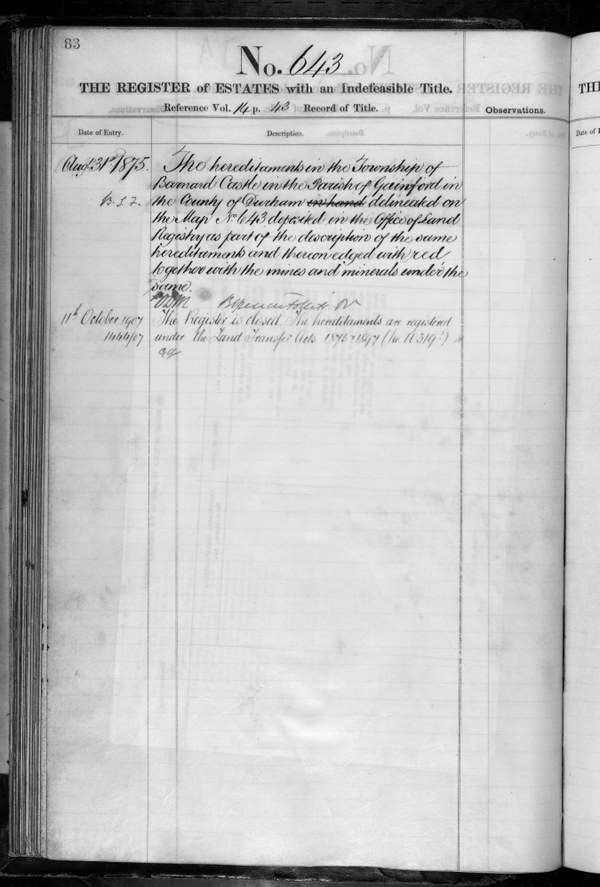 83
No. 643
THE REGISTER of ESTATES with an Indefeasible Title.
Reference Vol. 14 p. 43 Record of Title.
Observations.
Date of Entry.
Description.
Augt 31st 1875.
The hereditaments in the Township of
Barnard Castle in the Parish of Gainford in
the County of Durham in hand delineated on
the Map No 643 deposited in the Office of Land
Registry as part of the description of the same
hereditaments and thereon edged with red
together with the mines and minerals under the
same.
11th October 1907
The Register is closed. The hereditaments are registered
under the Land Transfer Acts 1875 & 1897
TH
Date of